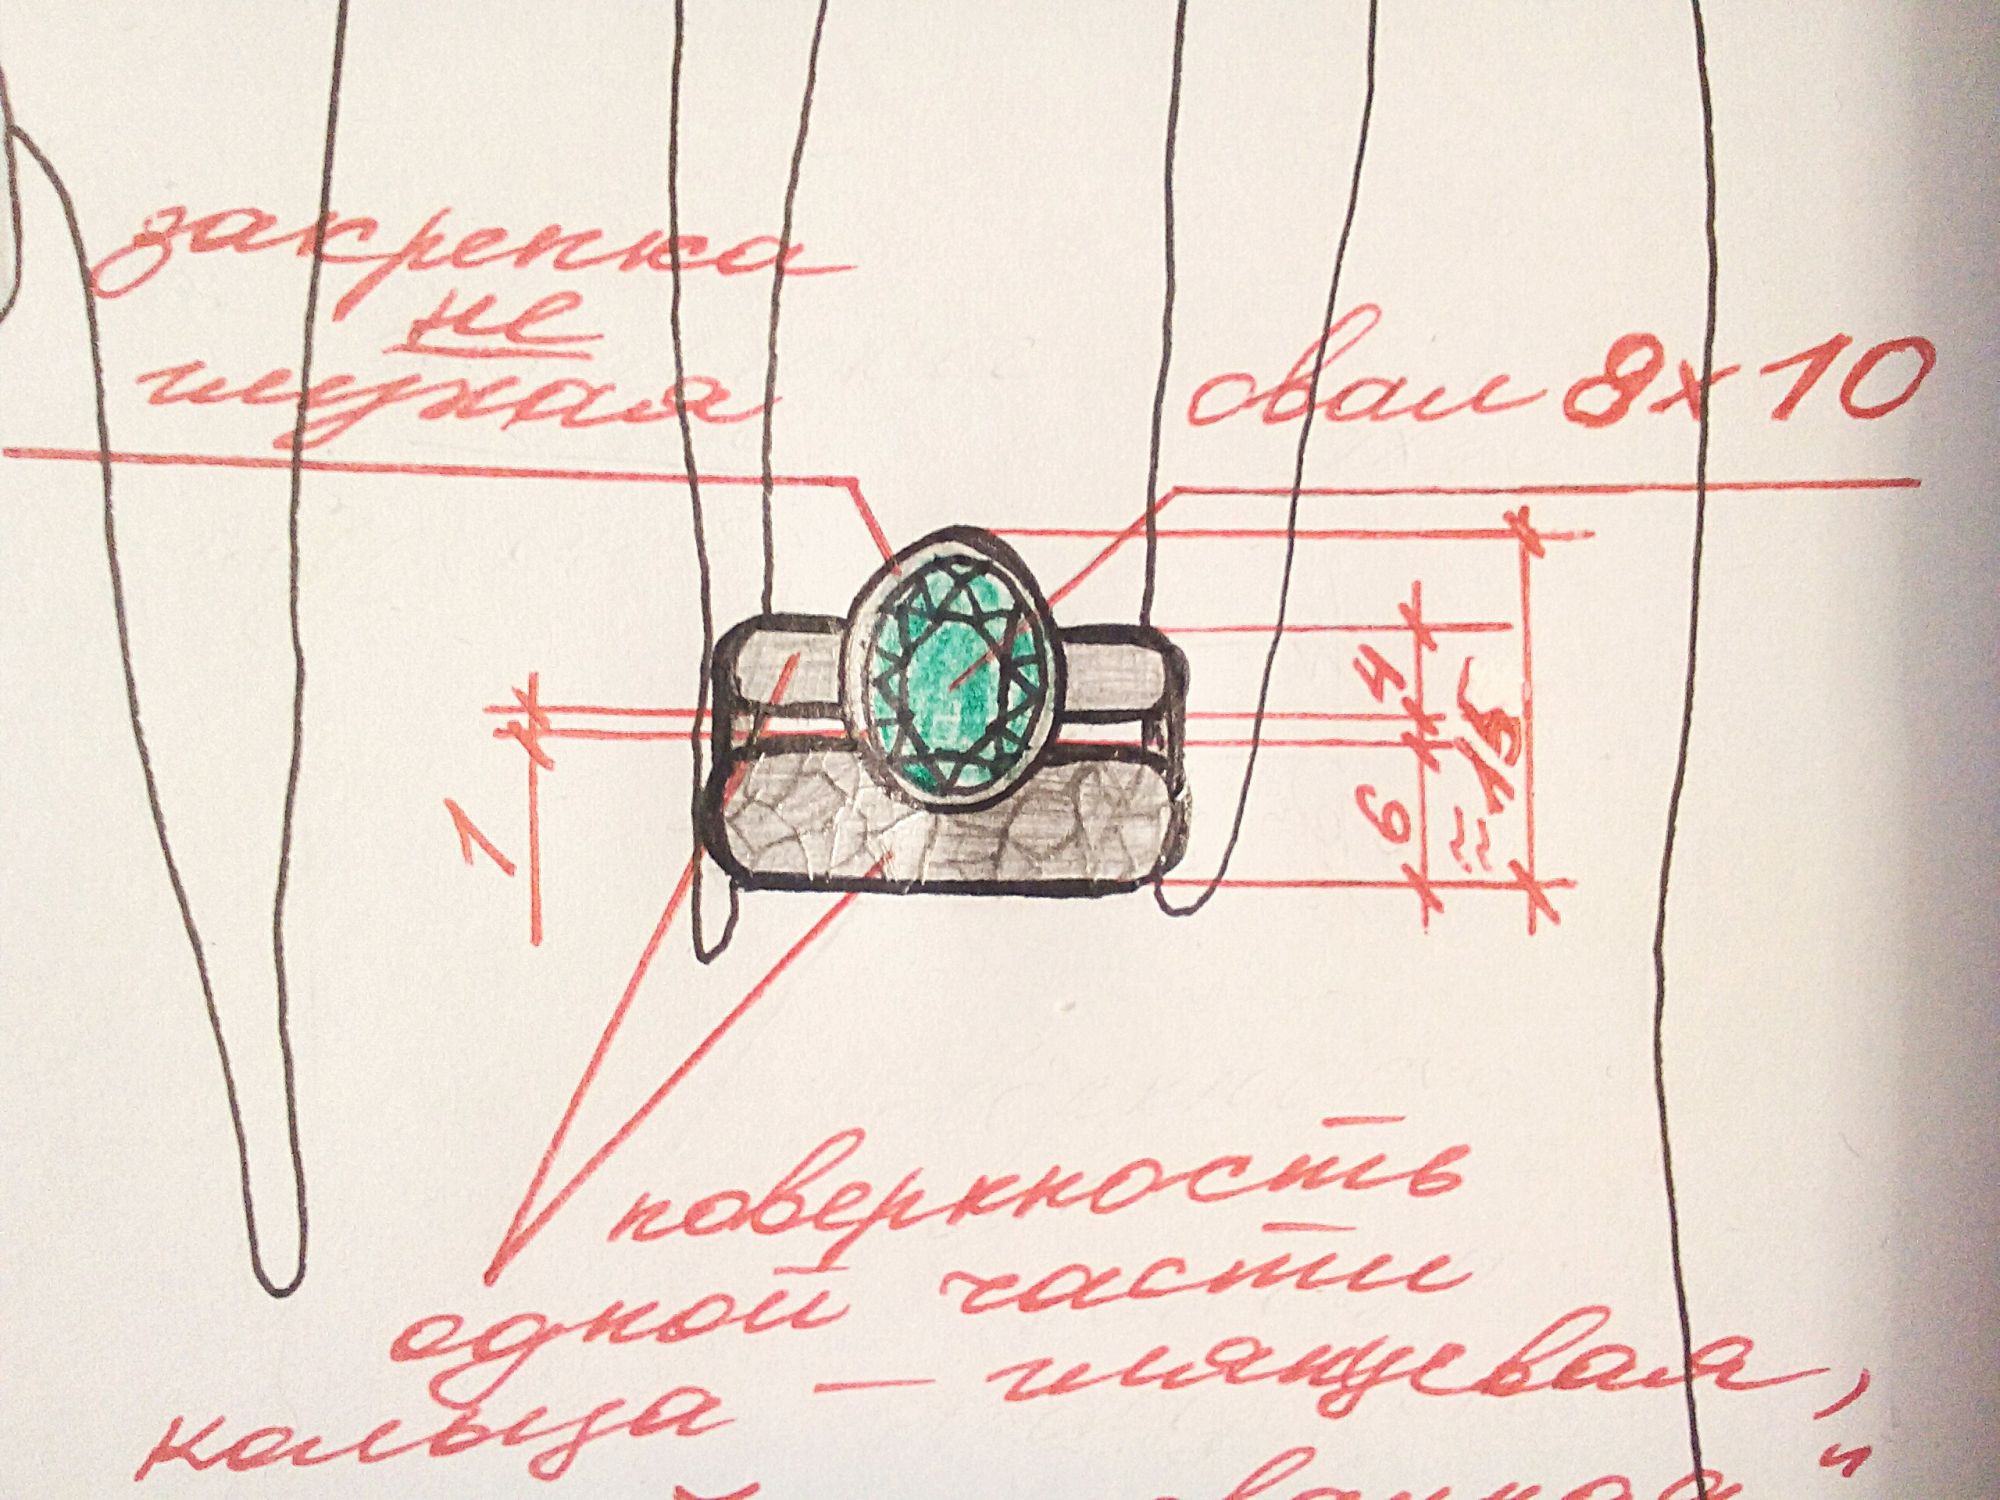 закрепка
не
глухая
овал 8х10
4
1
6
≈15
поверхность
одной части
кольца — глянцевая,